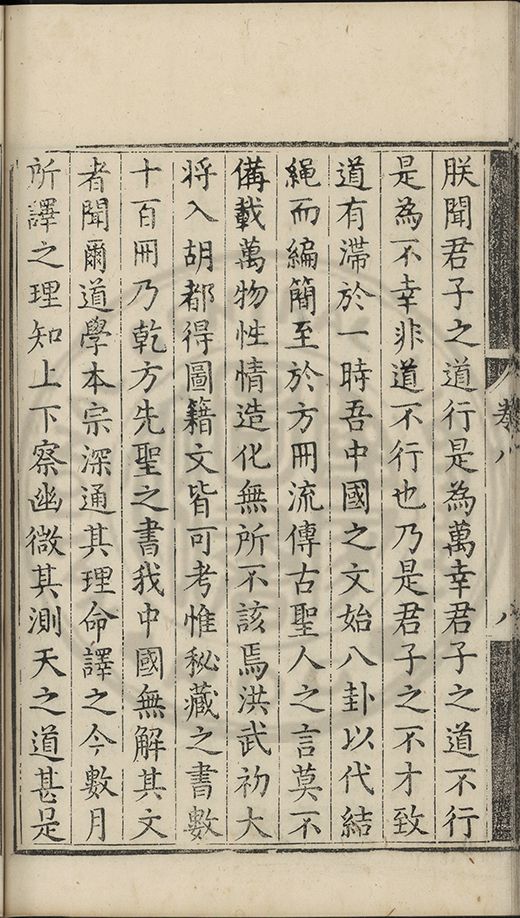 朕聞君子之道行是為萬幸君子之道不行
是為不幸非道不行也乃是君子之不才致
道有滯於一時吾中國之文始八卦以代結
繩而編簡至於方冊流傳古聖人之言莫不
備載萬物性情造化無所不該焉洪武初大
將入胡都得圖籍文皆可考惟秘藏之書數
十百冊乃乾方先聖之書我中國無解其文
者聞爾道學本宗深通其理命譯之今數月
所譯之理知上下察幽微其測天之道甚是
卷八
八